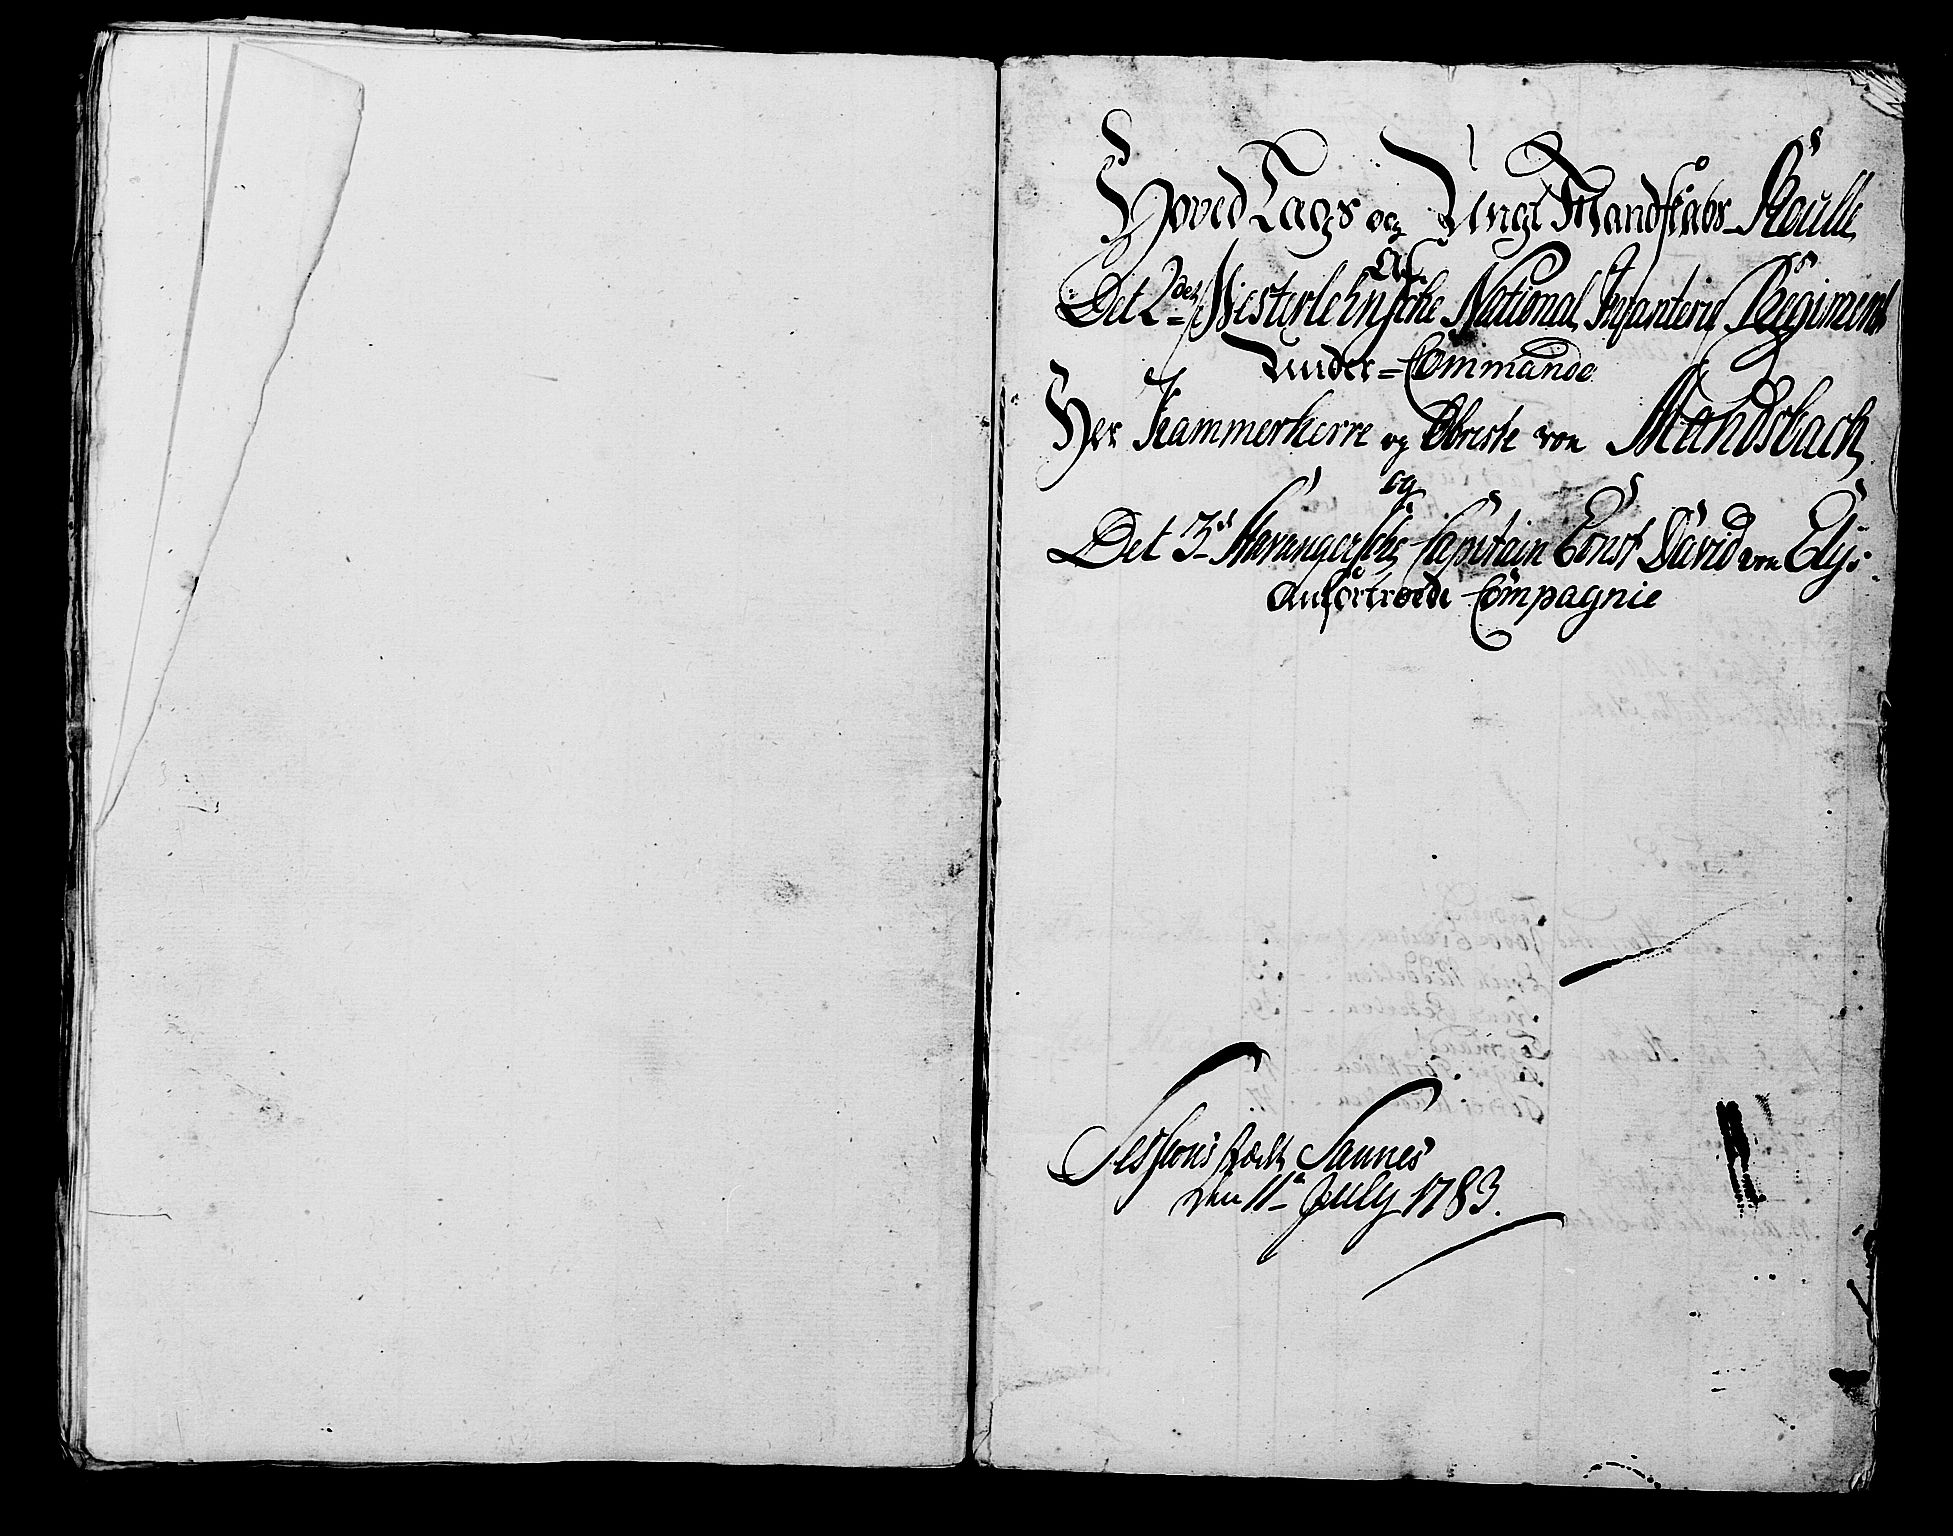 Hoved Lags og Ungt Mandskabs Roulle
Af
Det 2det Westerlehnsche National Infanterie Regiment
Under Commando
Her Kammerherre og Obriste von Mandsbach
og
Det 3de Stavangersche Capitain Ernst David von Elÿs
Anfortroede Compagnie
Sessions stædt Sannes
Den 11te July 1783.